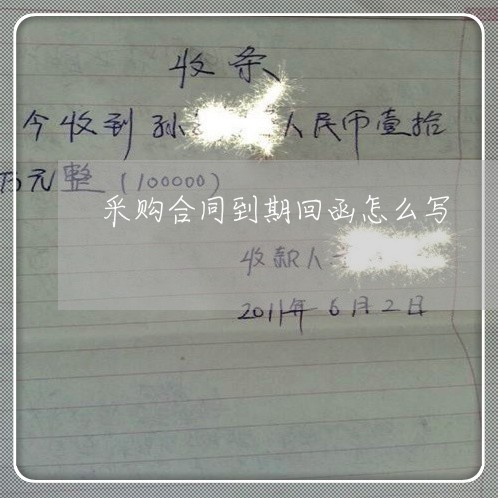 收条
今收到孙 人民币壹拾
万元整（100000）
采购合同到期回函怎么写
收款人
2011年6月2日